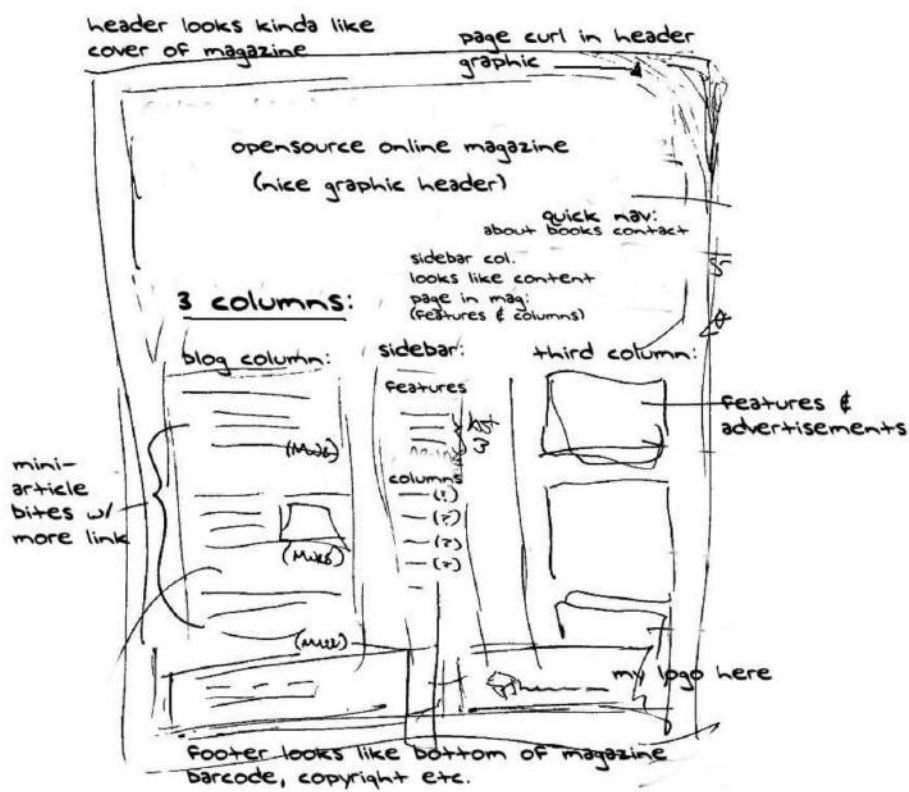 header looks kinda like
cover of magazine
page curl in header
graphic
opensource online magazine
(nice graphic header)
quick nav:
about books contact
sidebar col.
looks like content
page in mag:
(features & columns)
3 columns:
blog column:
sidebar:
third column:
features
list
3
columns
(?)
(?)
(?)
(?)
features &
advertisements
mini-
article
bites w/
more link
my logo here
footer looks like bottom of magazine
barcode, copyright etc.